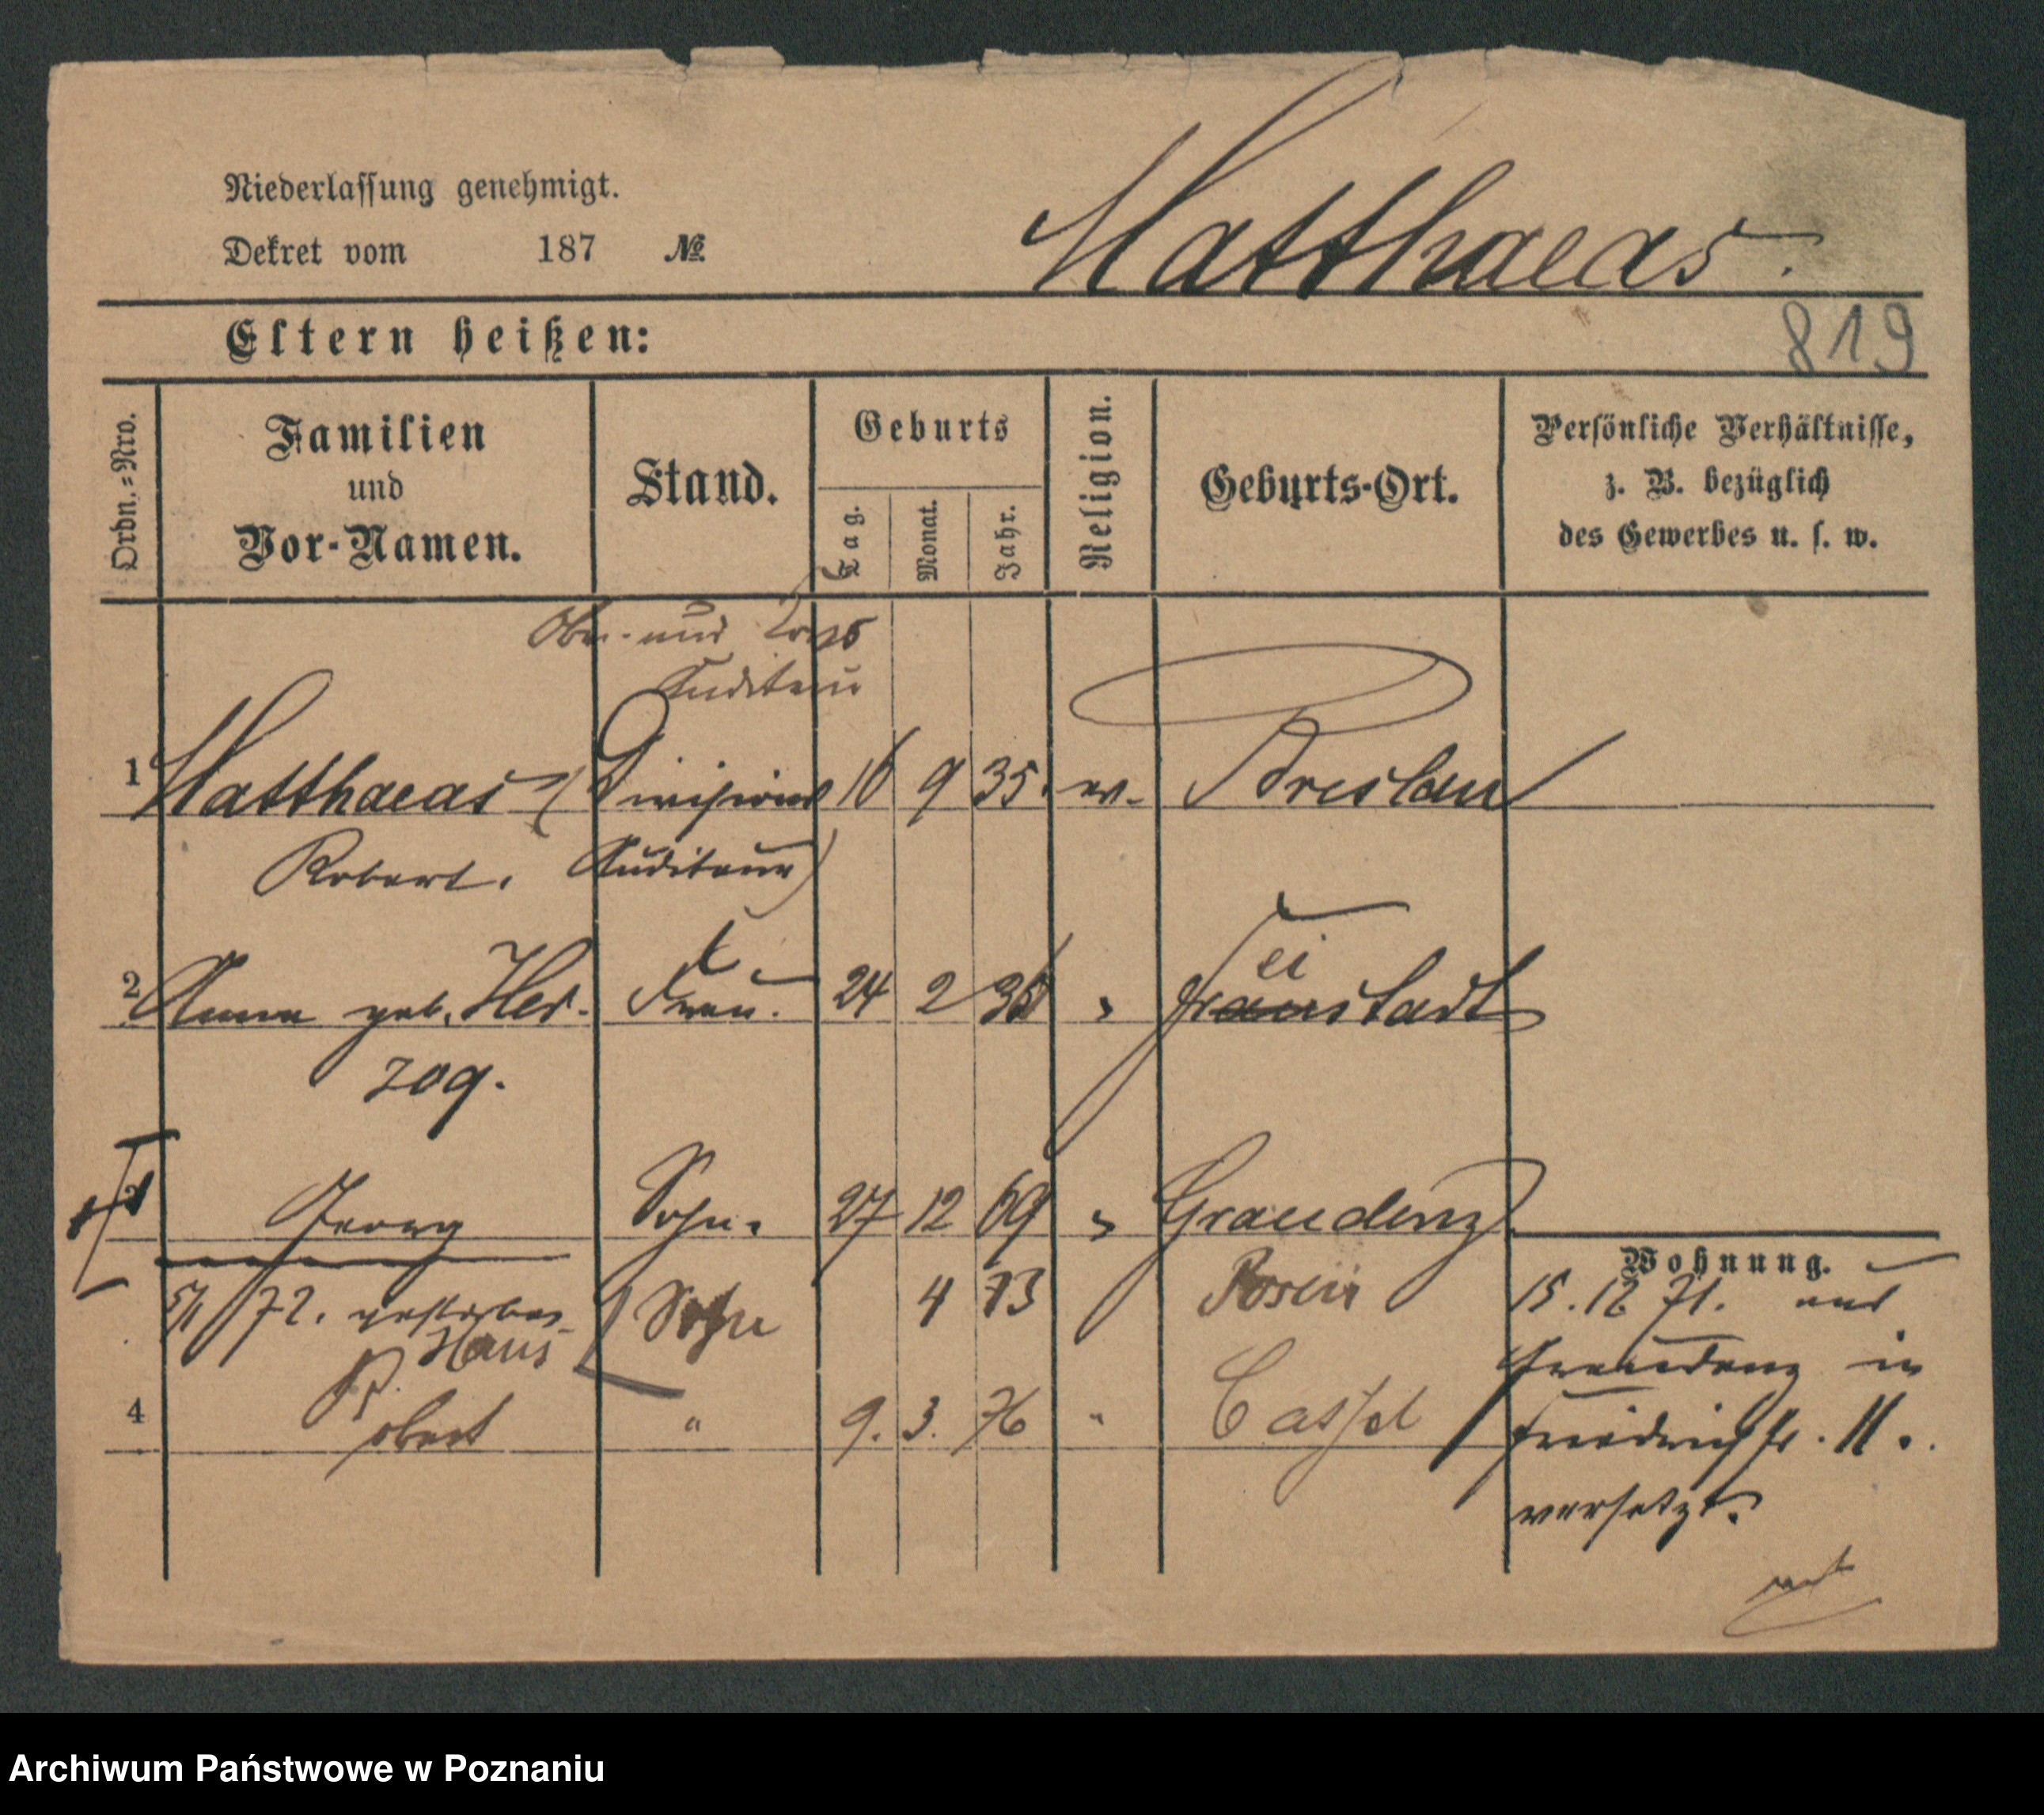 Niederlassung genehmigt.
Dekret vom 187 № Matthaeas.
819
Eltern heißen:
Ordn.=Nro.
Familien
und
Vor-Namen.
Stand.
Geburts
Tag.
Monat.
Jahr.
Religion.
Geburts-Ort.
Persönliche Verhältnisse,
z. B. bezüglich
des Gewerbes u. s. w.
Ober- und Corps
Auditeur
1 Matthaeas (Divisions 16 9 35. ev. Breslau
Robert. Auditeur)
2 Anna geb. Her- Frau. 24 2 " Freistadt
zog.
3 Georg Sohn. 27 12 69 " Graudenz
Wohnung.
5/1 72. gestorben Sohn 4 73 Posen 15. 12 71. aus
Hans
Graudenz in
4 Robert " 9. 3. 76 " Cassel Friedrichstr. 11.
versetzt.
Archiwum Państwowe w Poznaniu